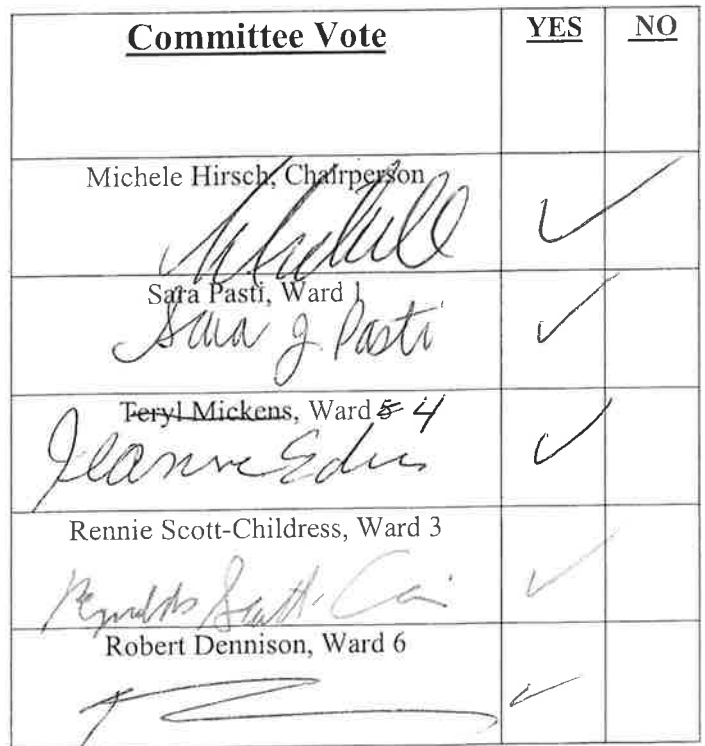 Committee Vote YES NO
Michele Hirsch, Chairperson
Sara Pasti, Ward 1
Sara J. Pasti
Teryl Mickens, Ward 5 4
Rennie Scott-Childress, Ward 3
Robert Dennison, Ward 6